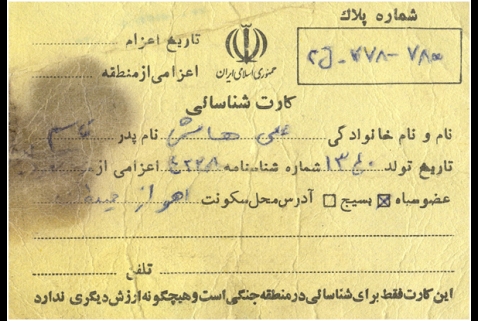 شماره پلاك
تاریخ اعزام
جمهوری اسلامی ایران
اعزامی از منطقه
کارت شناسائی
نام و نام خانوادگی علی هاشمی نام پدر
تاریخ تولد ۱۳۴۰ شماره شناسنامه ۴۲۲۸ اعزامی از
عضو سپاه ☒ بسیج ☐ آدرس محل سکونت اهواز
تلفن
این کارت فقط برای شناسائی در منطقه جنگی است و هیچگونه ارزش دیگری ندارد